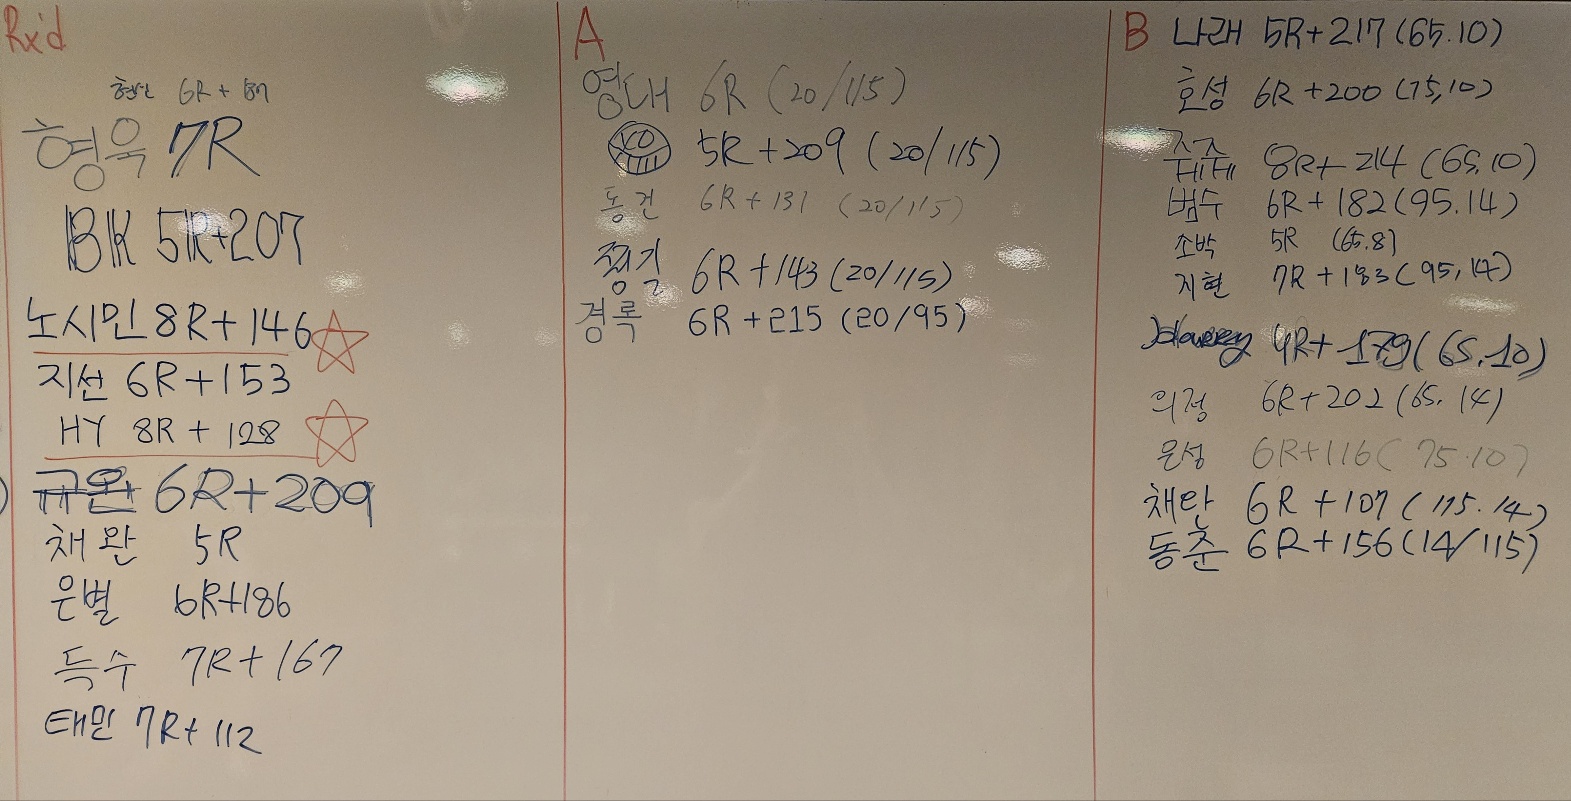 Rx'd
6R +
형욱 7R
BK 5R+207
노시민 8R+146
지선 6R+153
HY 8R + 128
규완 6R+209
채완 5R
은별 6R+186
득수 7R+167
태민 7R+112
A
영대 6R (20/115)
5R+209 (20/115)
동건 6R+131 (20/115)
6R+143 (20/115)
경록 6R+215 (20/95)
B 나래 5R+217 (65.10)
호성 6R+200 (75,10)
쥬쥬
8R+214 (65.10)
범수 6R+182 (95.14)
소박 5R (65.8)
지현 7R+183 (95,14)
4R+179 (65.10)
의정 6R+202 (65.14)
은성 6R+116 (75.10)
채안 6R+107 (115.14)
동춘 6R+156 (14/115)